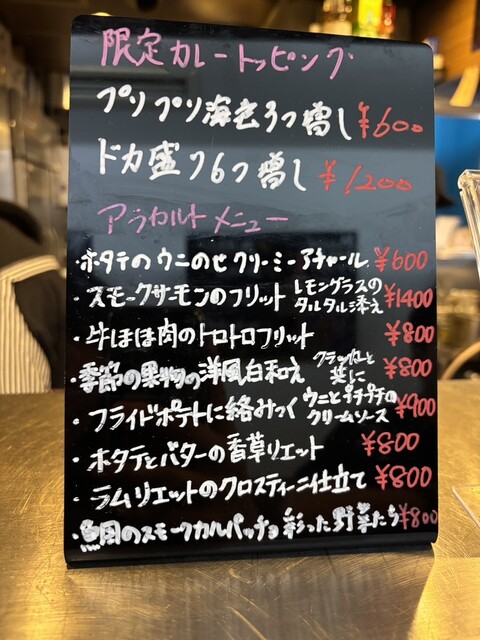 限定カレートッピング
プリプリ海老3つ増し ¥600
ドカ盛り6つ増し ¥1200
アラカルトメニュー
・ホタテのウニのせクリーミーアチャール ¥600
・スモークサーモンのフリット レモングラスのタルタル添え ¥1400
・牛ほほ肉のトロトロフリット ¥800
・季節の果物の洋風白和え クラッカーと共に ¥800
・フライドポテトに絡みつく ウニとプチプチのクリームソース ¥900
・ホタテとバターの香草リエット ¥800
・ラムリエットのクロスティーニ仕立て ¥800
・魚のスモークカルパッチョ 彩った野菜たち ¥800